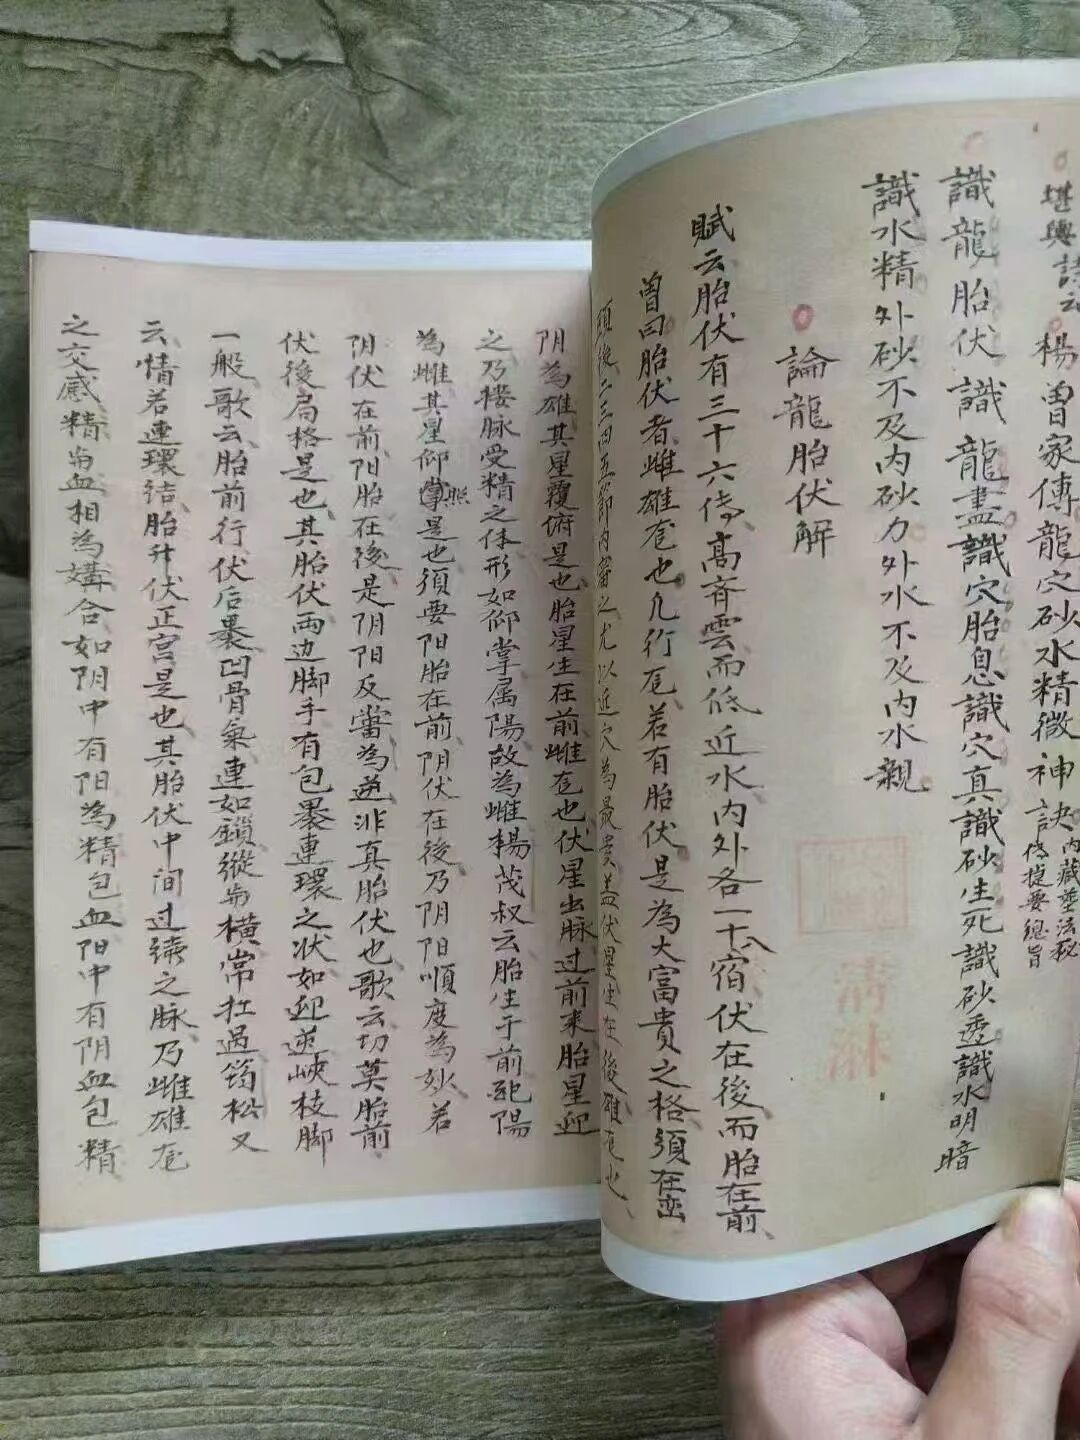 堪輿詩云
楊曾家傳龍穴砂水精微神訣
內藏葬法秘
訣傳授要總旨
識龍胎伏識龍盡識穴胎息識穴真識砂生死識砂透識水明暗
識水精外砂不及內砂力外水不及內水親
論龍胎伏解
賦云胎伏有三十六傳高齊雲而低近水內外各一十八宿伏在後而胎在前
曾曰胎伏者雌雄䧳也凡行䧳若有胎伏是為大富貴之格須在巒
頭後二三四五節內審之尤以近穴為最貴盖伏星生在後雄䧳也
阴為雄其星覆俯是也胎星生在前雌䧳也伏星出脉过前来胎星迎
之乃楼脉受精之体形如仰掌属陽故為雌楊茂叔云胎生于前配陽
為雌其星仰掌是也須要阳胎在前阴伏在後乃阴阳順度為妙若
照
阴伏在前阳胎在後是阴阳反當為逆非真胎伏也歌云切莫胎前
伏後局格是也其胎伏両边脚手有包裹連環之状如迎送峽枝脚
一般歌云胎前行伏后裹凹骨乗連如鎖縱与横常扛過筠松又
云情若連環结胎升伏正宫是也其胎伏中间过续之脉乃雌雄䧳
之交感精与血相為媾合如阴中有阳為精包血阳中有阴血包精